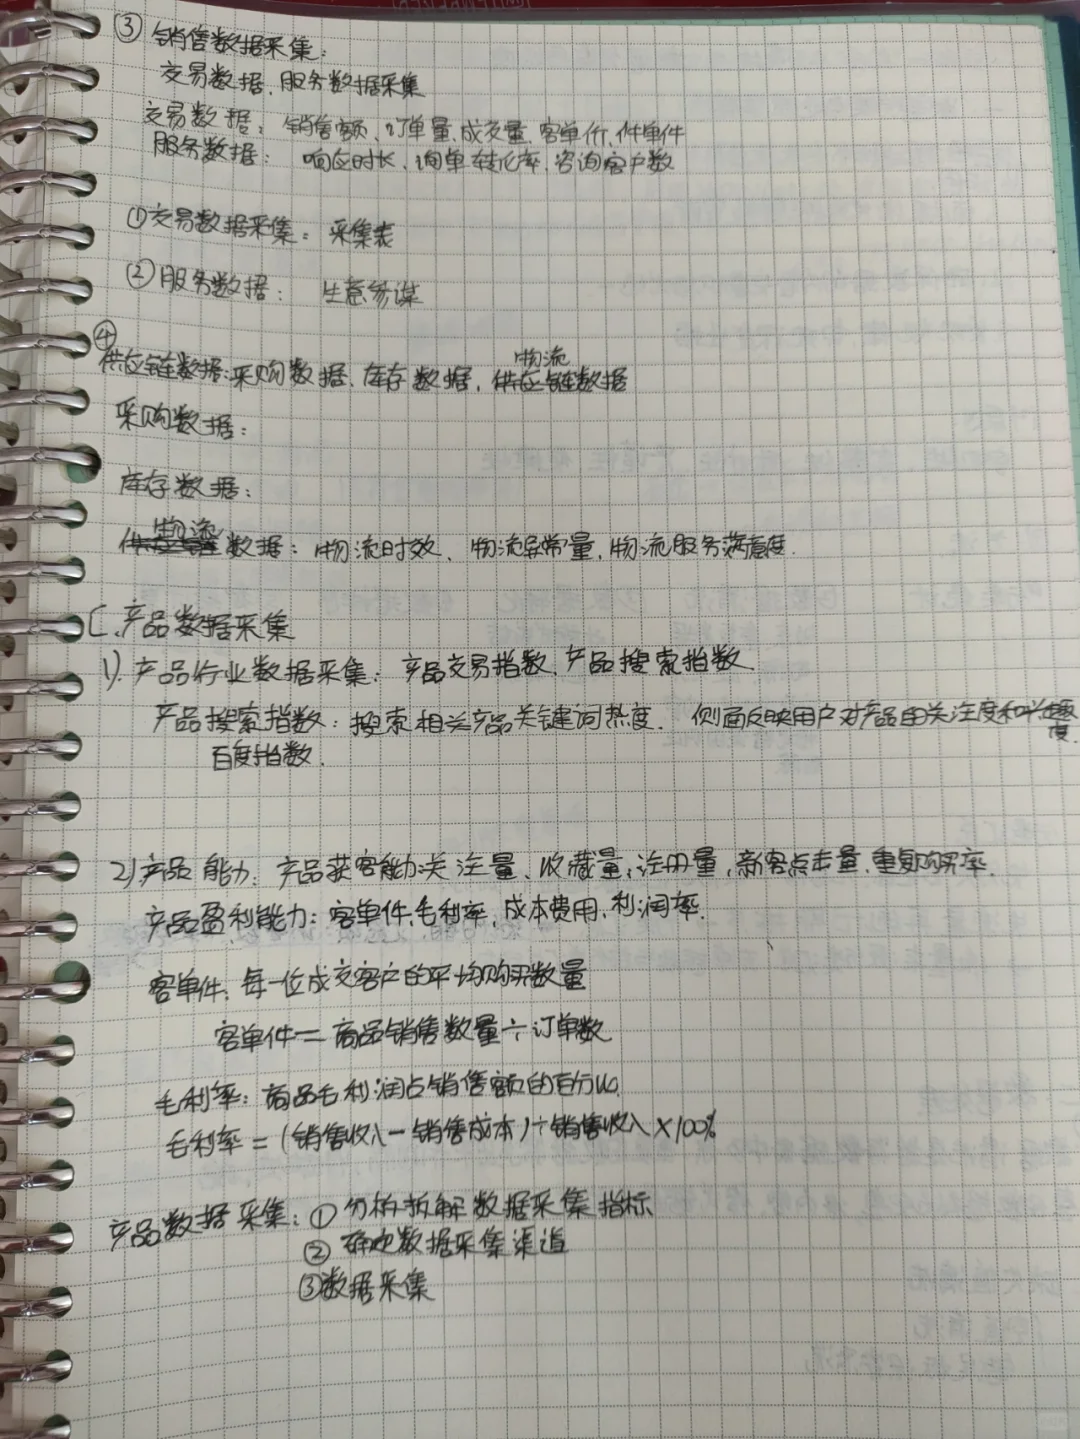 ③ 销售数据采集:
交易数据、服务数据采集
交易数据: 销售额、订单量、成交量、客单价、件单件
服务数据: 响应时长、询单转化率、咨询客户数
①交易数据采集: 采集表
②服务数据: 生意参谋
④
物流
供应链数据:采购数据、库存数据、供应链数据
采购数据:
库存数据:
物流
数据: 物流时效、物流异常量、物流服务满意度.
C.产品数据采集
1).产品行业数据采集: 产品交易指数、产品搜索指数.
产品搜索指数: 搜索相关产品关键词热度. 侧面反映用户对产品的关注度和兴趣
度.
百度指数.
2)产品能力: 产品获客能力关注量、收藏量、注册量,新客点击量、重复购买率.
产品盈利能力: 客单件、毛利率、成本费用、利润率.
客单件: 每一位成交客户的平均购买数量
客单件=商品销售数量÷订单数
毛利率: 商品毛利润占销售额的百分比.
毛利率=(销售收入-销售成本)÷销售收入×100%
产品数据采集:①分析拆解数据采集指标
②确定数据采集渠道
③数据采集